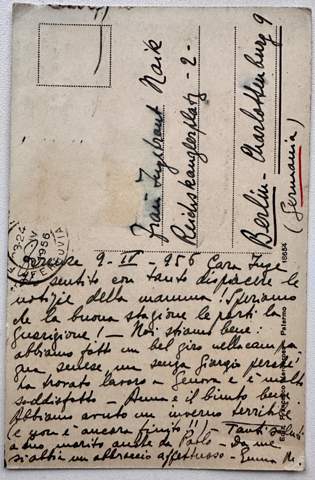 Frau Ingetraut Raik
Reichskanzlerplatz -2-
Berlin - Charlottenburg 9
(Germania)
Firenze 9-IV-956 Cara Inge
sentito con tanto dispiacere le
notizie della mamma! Speriamo
che la buona stagione le porti la
guarigione! — Noi stiamo bene:
abbiamo fatto un bel giro nella campa
gna senese, ma senza Giorgio perché
ha trovato lavoro a Genova e è molto
soddisfatto - Anna e il bimbo bene
Abbiamo avuto un inverno terribile
(e non è ancora finito!!) - Tanti saluti
a suo marito anche da Paolo - Da me
si abbia un abbraccio affettuoso - Emma M.
1956
FERROVIA
Palermo